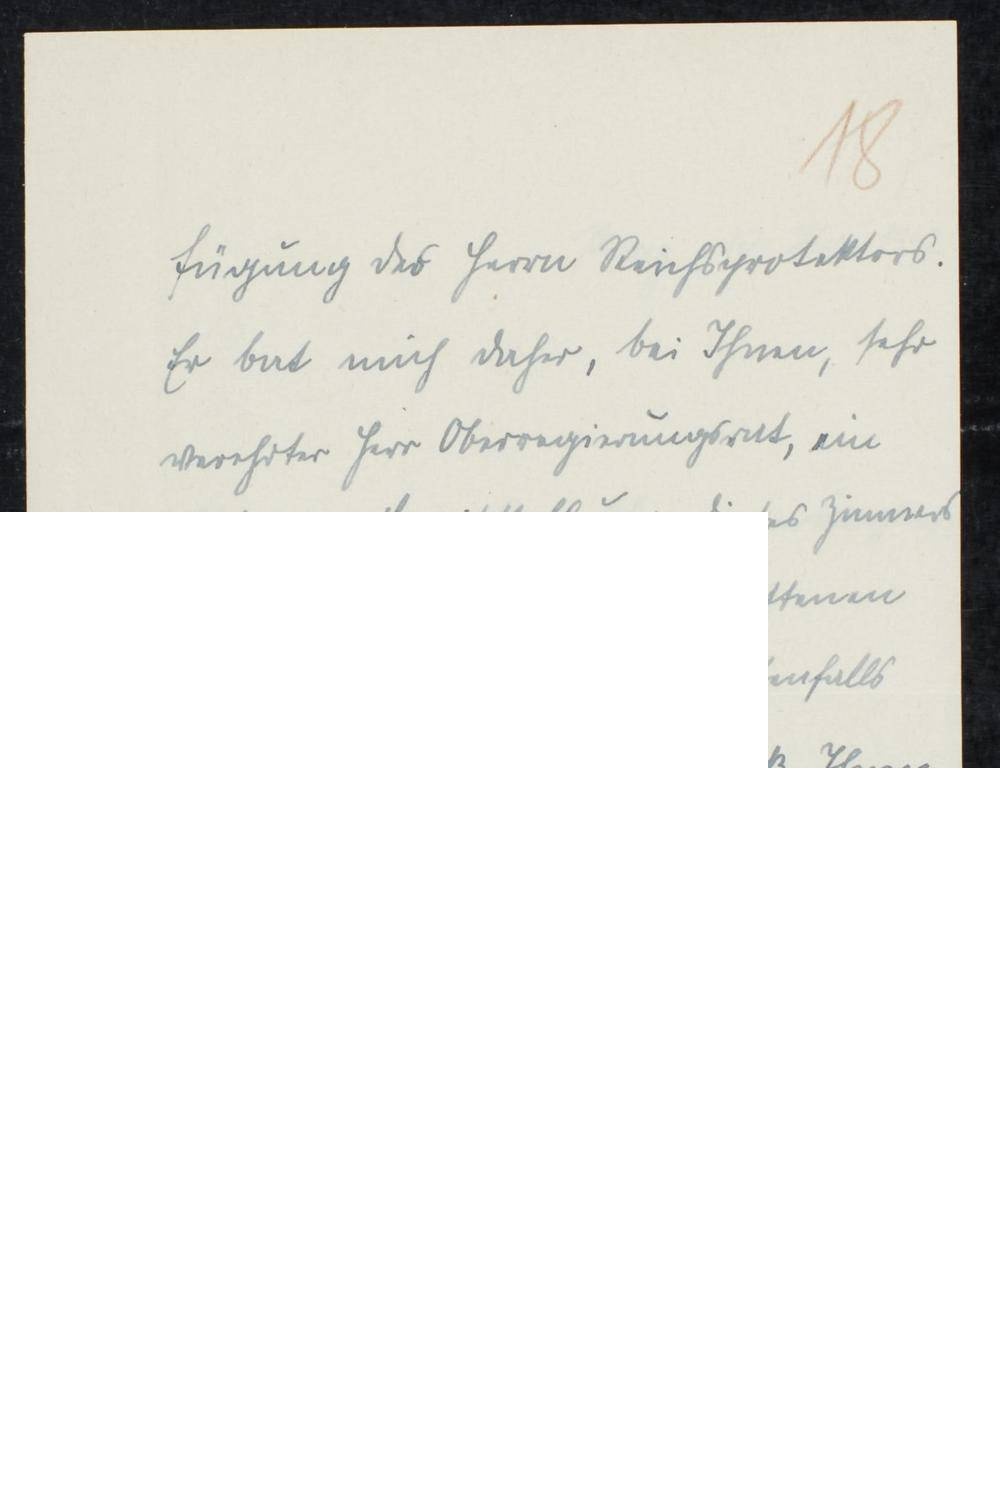 18
fügung des Herrn Reichsprotektors.
Er bat mich daher, bei Ihnen, sehr
verehrter Herr Oberregierungsrat, ein
Zimmers